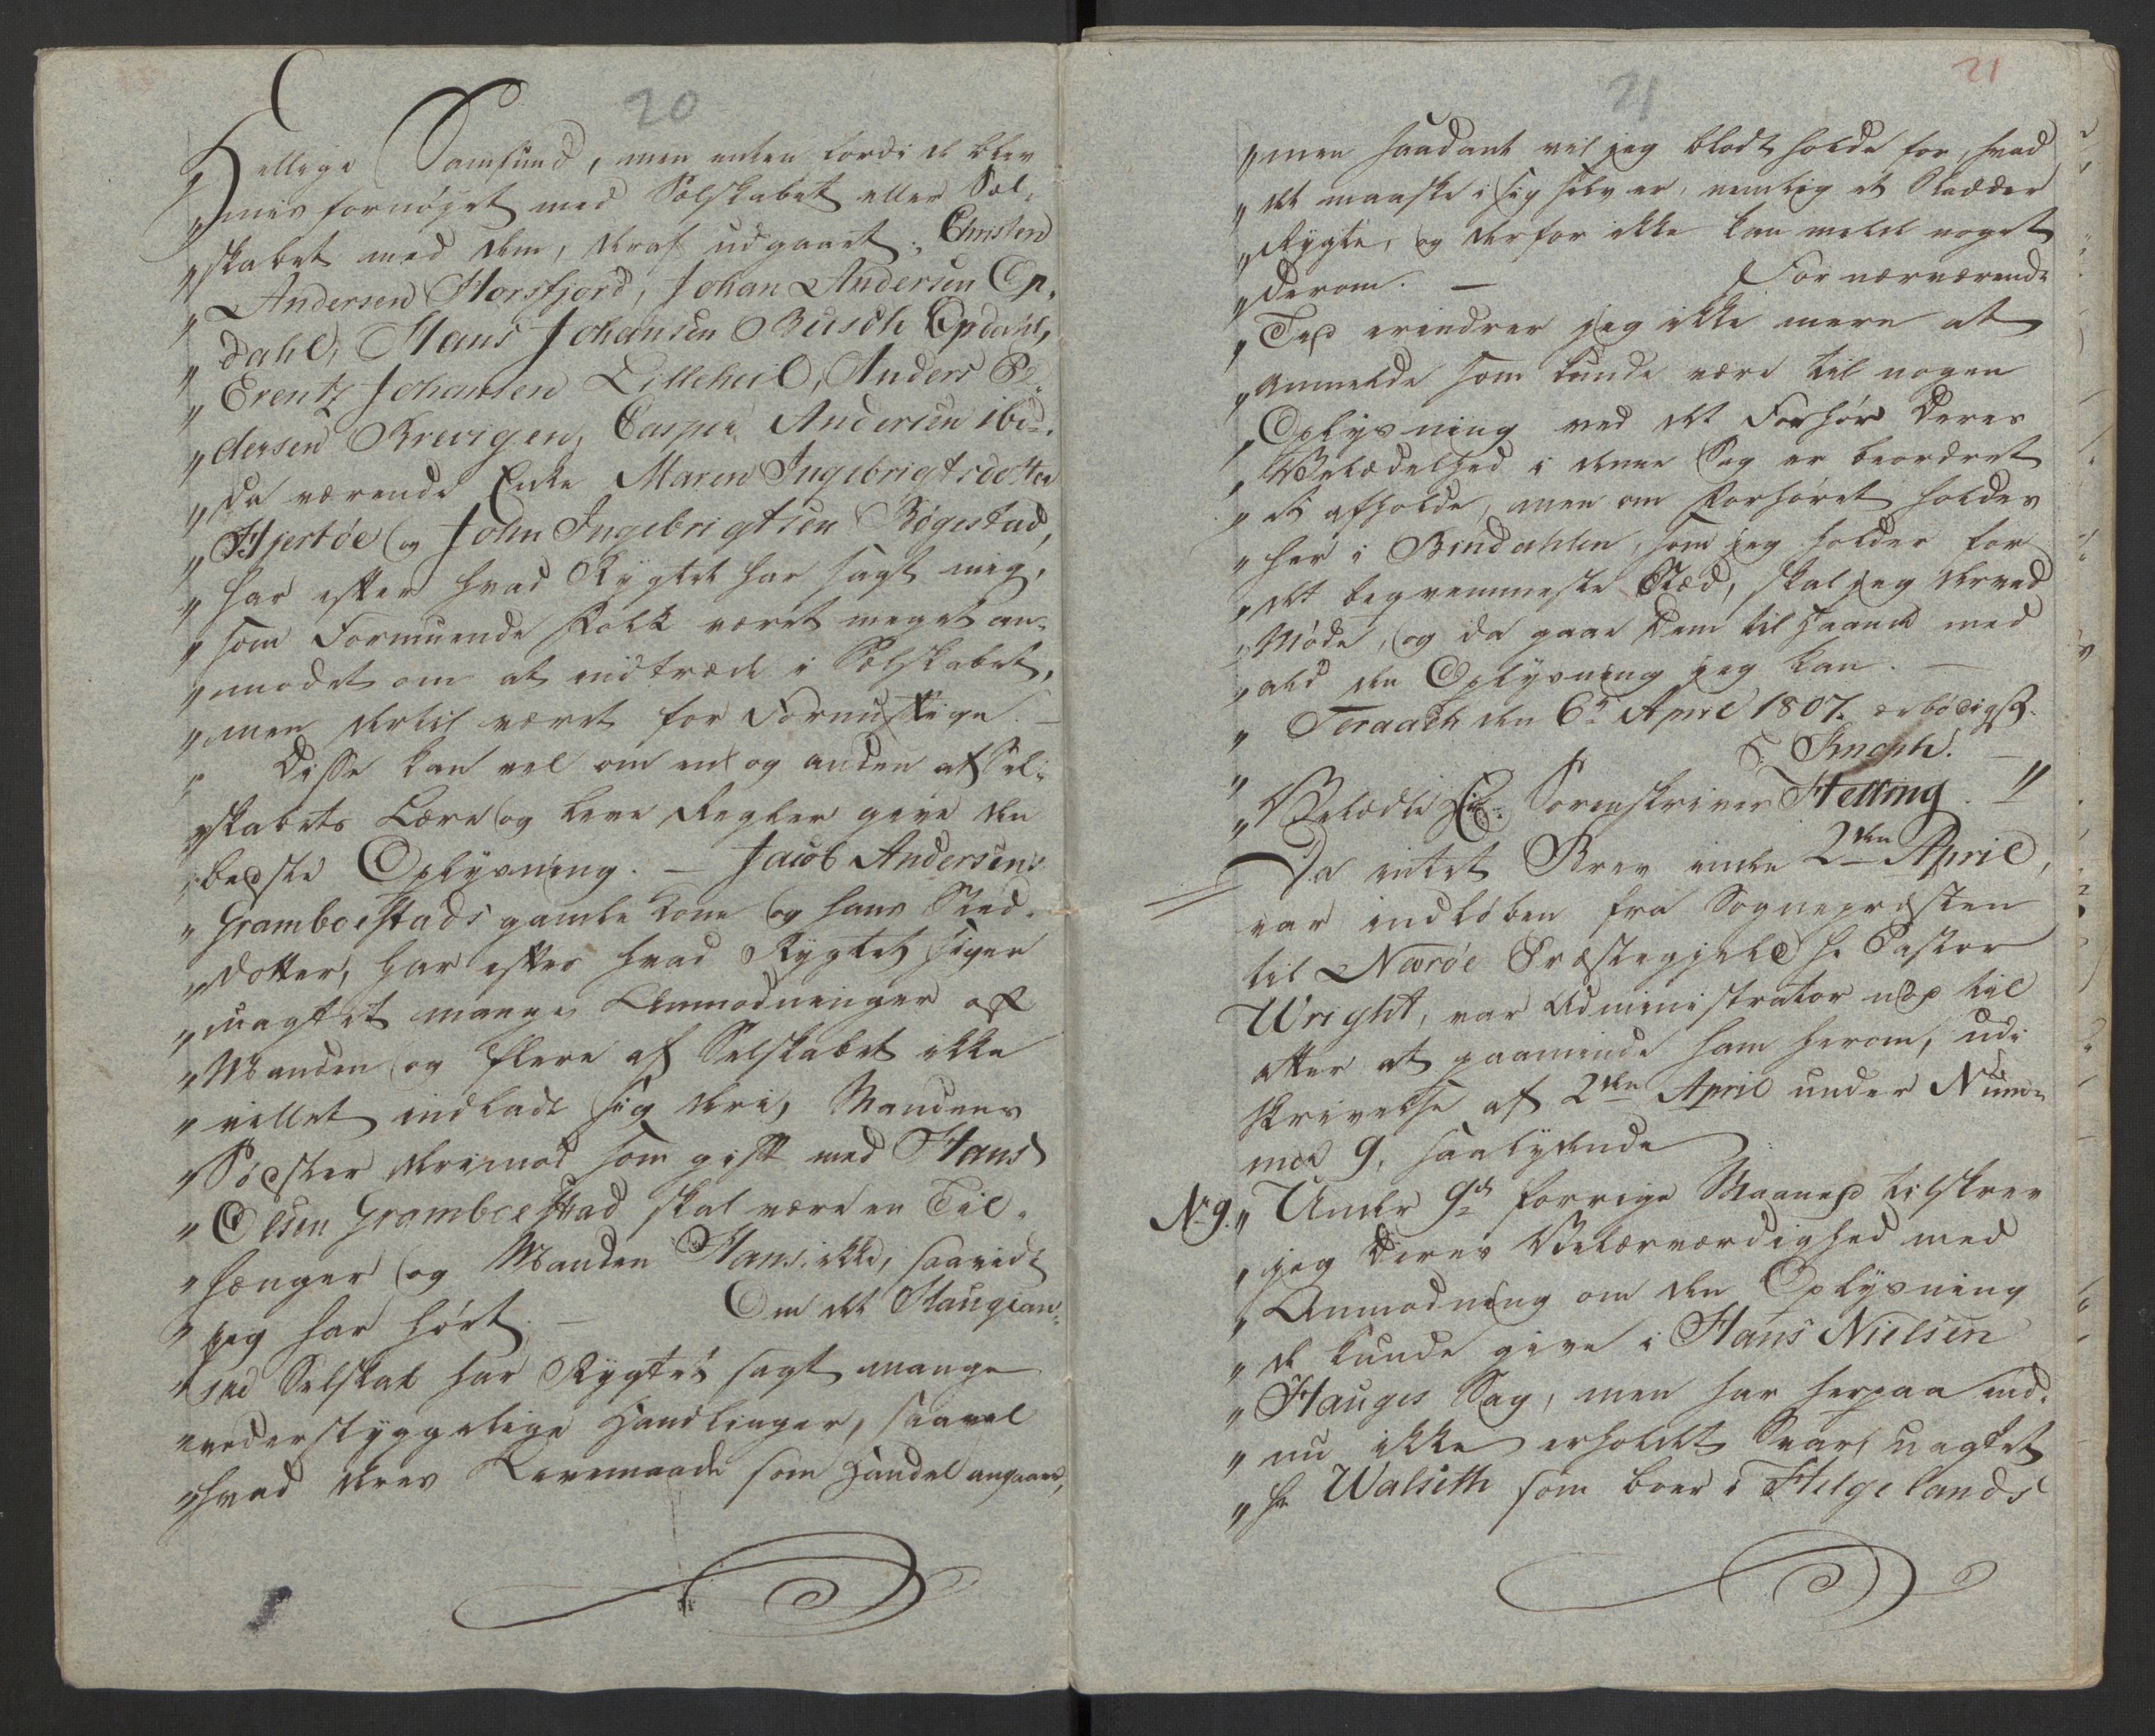 20
„Hellige Samfund, men enten fordi de blev
„misfornøyet med Selskabet eller Sel-
„skabet med dem, deraf udgaaet: Christen
„Andersen Horsfjord, Johan Andersen Op-
„dahl, Hans Johansen Busch Opdahl,
„Erentz Johansen Lilleheil, Anders Pe-
„dersen Brevigen, Casper Andersen ibid.
„da værende Enke Maren Ingebrigtsdotter
„Hjertøe og John Ingebrigtsen Bøgestad,
„har efter hvad Rygtet har sagt mig,
„som Formuende Folk været meget an-
„modet om at indtræde i Selskabet,
„men dertil været for Fornuftige. —
„ Disse kan vel om en og anden af Sel-
„skabets Lære og leve Regler give den
„bedste Oplysning. — Jacob Andersens
„Gramboestads gamle Kone og hans Sted-
„dotter, har efter hvad Rygtet siger
„uagtet mange Anmodninger af
„Manden og flere af Selskabet ikke
„villet indlade sig deri, Mandens
„Søster derimod som gift med Hans
„Olsen Gramboestad skal være en Til-
„hænger og Manden Hans ikke, saavidt
„jeg har hørt. — Om det Haugian-
„ske Selskab har Rygtet sagt mange
„vederstyggelige Handlinger, saavel
„hvad deres Levemaade som Handel angaaer,
21
21
„men saadant vil jeg blodt holde for, hvad
„det maaske i sig selv er, nemlig et Sladder
„Rygte, og derfor ikke kan melde noget
„derom. — For nærværende
„Tid erindrer jeg ikke mere at
„anmelde som kunde være til nogen
„Oplysning ved det Forhør Deres
„Velædelhed i denne Sag er beordret
„at afholde, men om Forhøret holdes
„her i Bindahlen, som jeg holder for
„det beqvemmeste Stæd, skal jeg derved
„Møde, og da gaae Dem til Haande med
„ald den Oplysning jeg kan. —
„Teraack den 6te April 1807. ærbødigst
„ Knoph. —
„Velædle Hr: Sorenskriver Helting. „
Da intet Brev inden 2den April,
var indløben fra Sognepræsten
til Nærøe Præstegjeld Hr Pastor
Wright, var Administrator nødt til
atter at paaminde ham herom, udi
skrivelse af 2den April under Num-
mer 9, saalydende
No 9. „Under 9de forrige Maaned tilskrev
„jeg Deres Velærværdighed med
„Anmodning om den Oplysning
„De kunde give i Hans Nielsen
„Hauges Sag, men har herpaa end-
„nu ikke erholdt Svar, uagtet
„Hr Walseth som boer i Helgelands